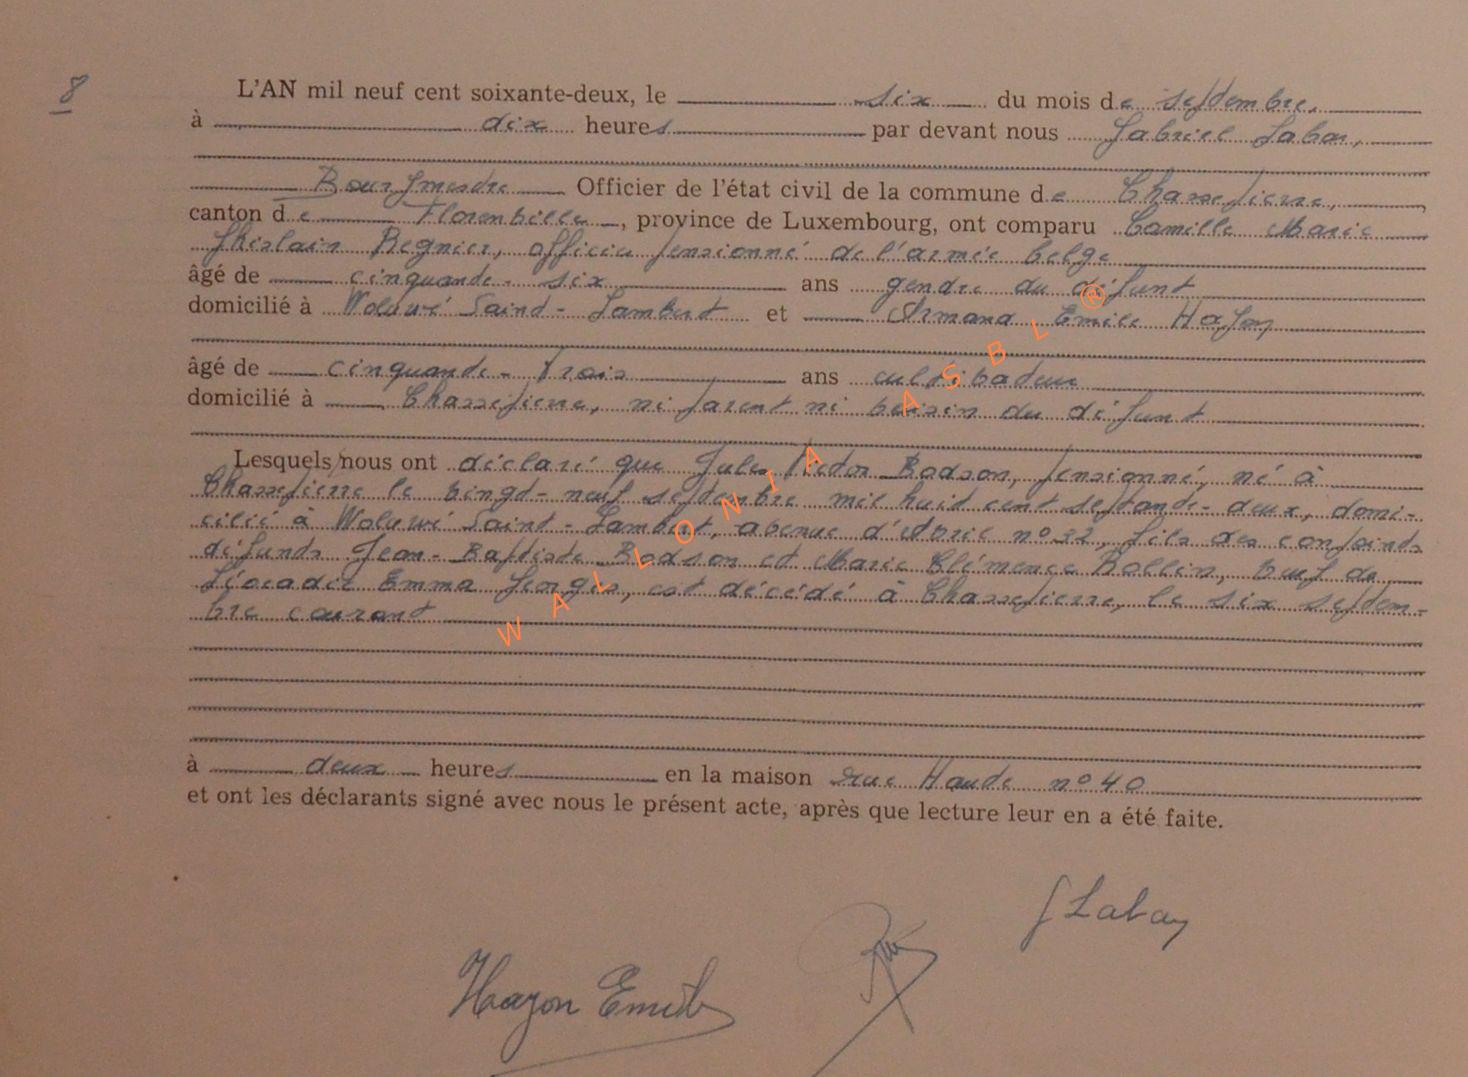 8
L'AN mil neuf cent soixante-deux, le six du mois de septembre,
à dix heures par devant nous Gabriel Labay,
Bourgmestre Officier de l'état civil de la commune de Chassepierre,
canton de Florenville, province de Luxembourg, ont comparu Camille Marie
Ghislain Regnier, officier pensionné de l'armée belge
âgé de cinquante-six ans gendre du défunt
domicilié à Woluwé Saint-Lambert et Armand Emile Hazon
âgé de cinquante-trois ans cultivateur
domicilié à Chassepierre, ni parent ni voisin du défunt
Lesquels nous ont déclaré que Jules Nestor Rodson, pensionné, né à
Chassepierre le vingt-neuf septembre mil huit cent septante-deux, domi-
cilié à Woluwé Saint-Lambert, avenue d'Avril n° 22, fils des conjoints
défunts Jean-Baptiste Rodson et Marie Clémence Rollin, veuf de
Léocadie Emma Georges, est décédé à Chassepierre, le six septem-
bre courant
à deux heures en la maison rue Haute n° 40
et ont les déclarants signé avec nous le présent acte, après que lecture leur en a été faite.
G Labay
Hazon Emile
WALLONIA ASBL ®